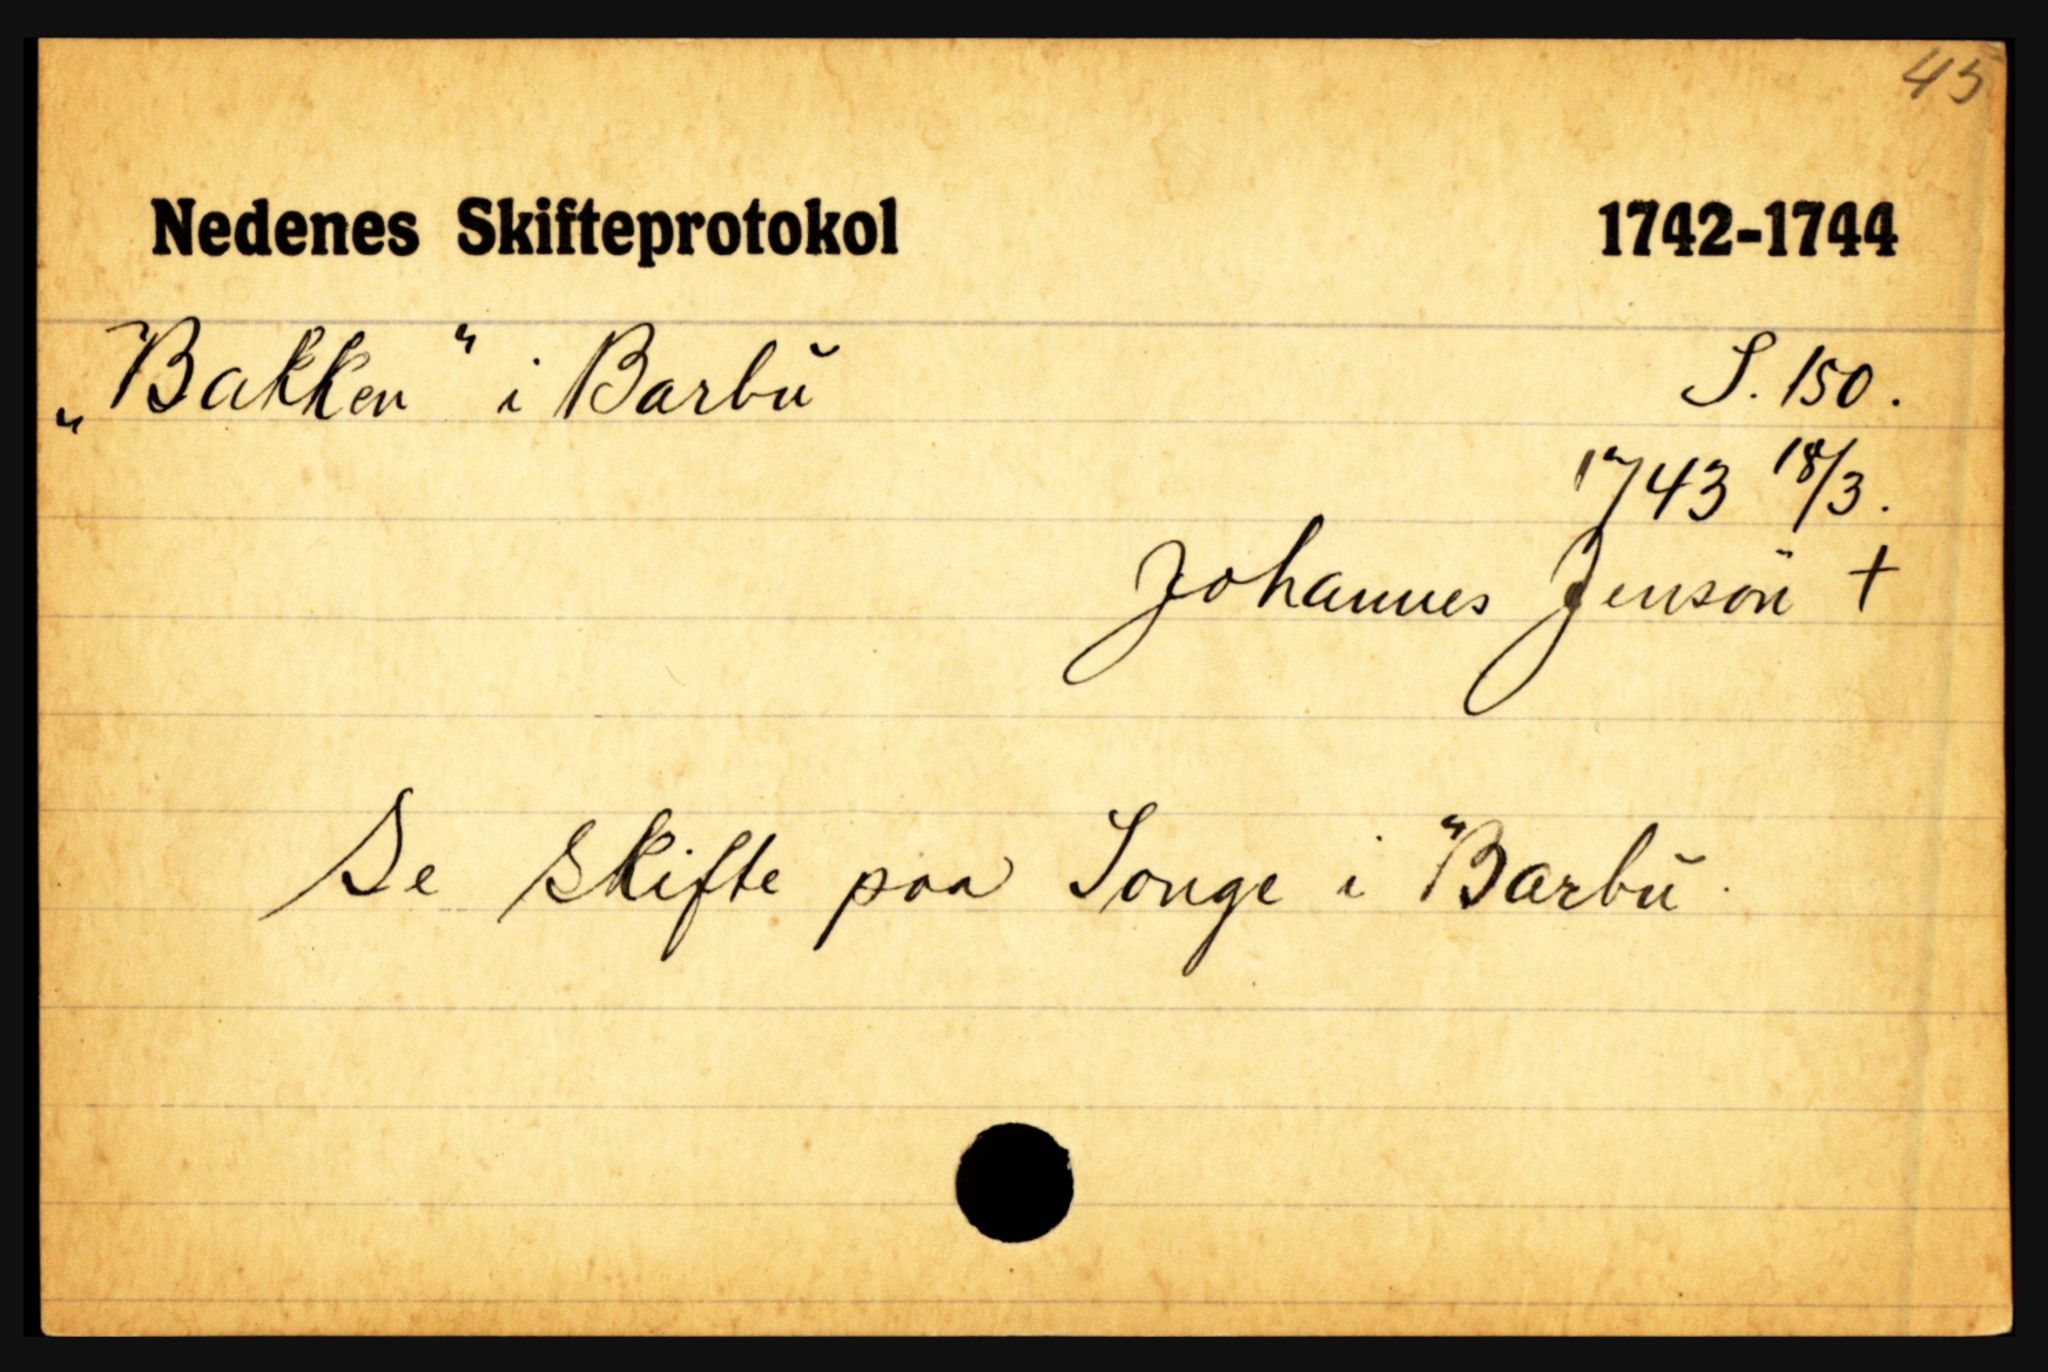 45
Nedenes Skifteprotokol 1742-1744
„Bakken“ i Barbu S. 150.
1743 18/3.
Johannes Jenson †
Se skifte paa Songe i Barbu.